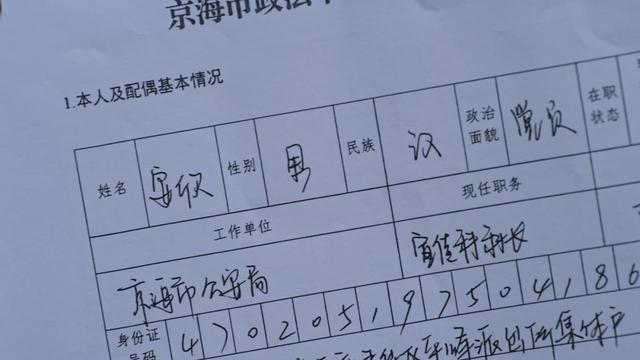 京海市政法
1.本人及配偶基本情况
姓名 安欣 性别 男 民族 汉 政治面貌 党员 在职状态
工作单位 现任职务
京海市公安局 宣传科科长
身份证号码 4702051975041 86
派出所集体户